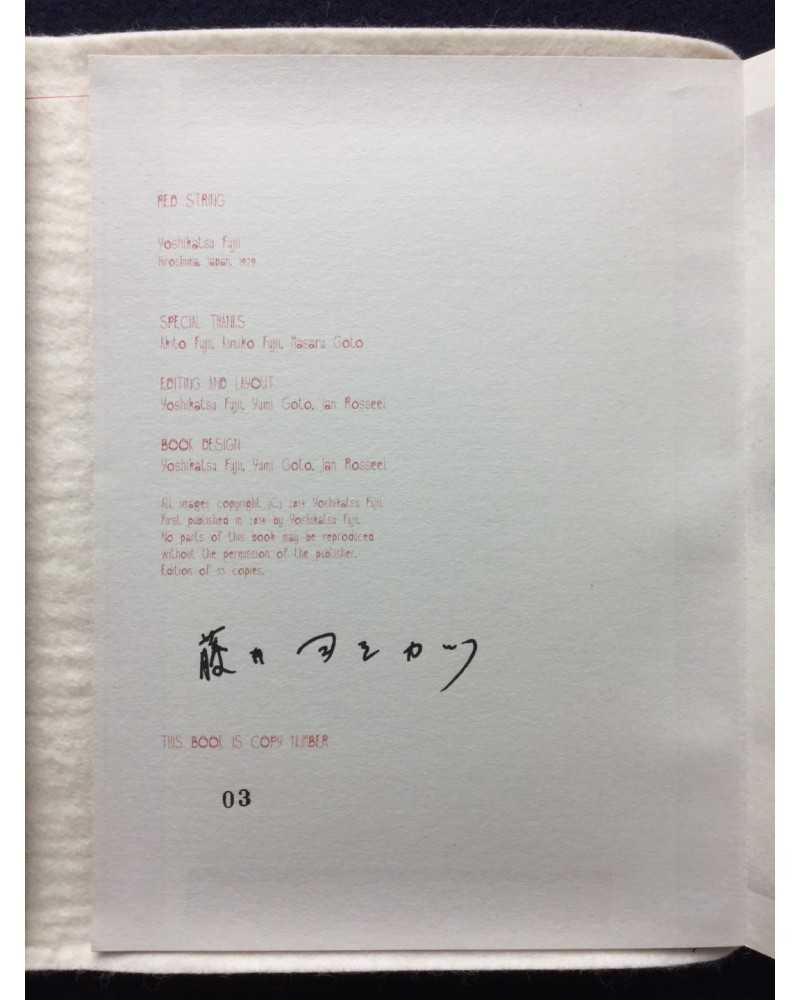 RED STRING
Yoshikatsu Fujii
Hiroshima, Japan, 1979
SPECIAL THANKS
Akito Fujii, Kimiko Fujii, Masaru Goto
EDITING AND LAYOUT
Yoshikatsu Fujii, Yumi Goto, Jan Rosseel
BOOK DESIGN
Yoshikatsu Fujii, Yumi Goto, Jan Rosseel
All images copyright (C) 2014 Yoshikatsu Fujii.
First published in 2014 by Yoshikatsu Fujii.
No parts of this book may be reproduced
without the permission of the publisher.
Edition of copies.
藤井 ヨシカツ
THIS BOOK IS COPY NUMBER
03